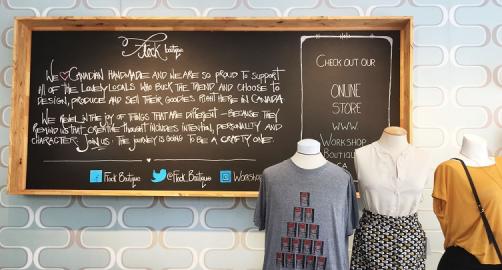 Flock boutique
WE ♡ CANADIAN HANDMADE AND WE ARE SO PROUD TO SUPPORT
All OF THE LOVELY LOCALS WHO BUCK THE TREND AND CHOOSE TO
DESIGN, PRODUCE AND SELL THEIR GOODIES RIGHT HERE IN CANADA
WE REVEL IN THE JOY OF THINGS THAT ARE DIFFERENT - BECAUSE THEY
REMIND US THAT CREATIVE THOUGHT INCLUDES INTENTION, PERSONALITY AND
CHARACTER. JOIN US. THE JOURNEY IS GOING TO BE A CRAFTY ONE.
Flock Boutique @Flock Boutique Workshop
CHECK OUT OUR
ONLINE
STORE
WWW.
WORKSHOP
BOUTIQUE
.CA